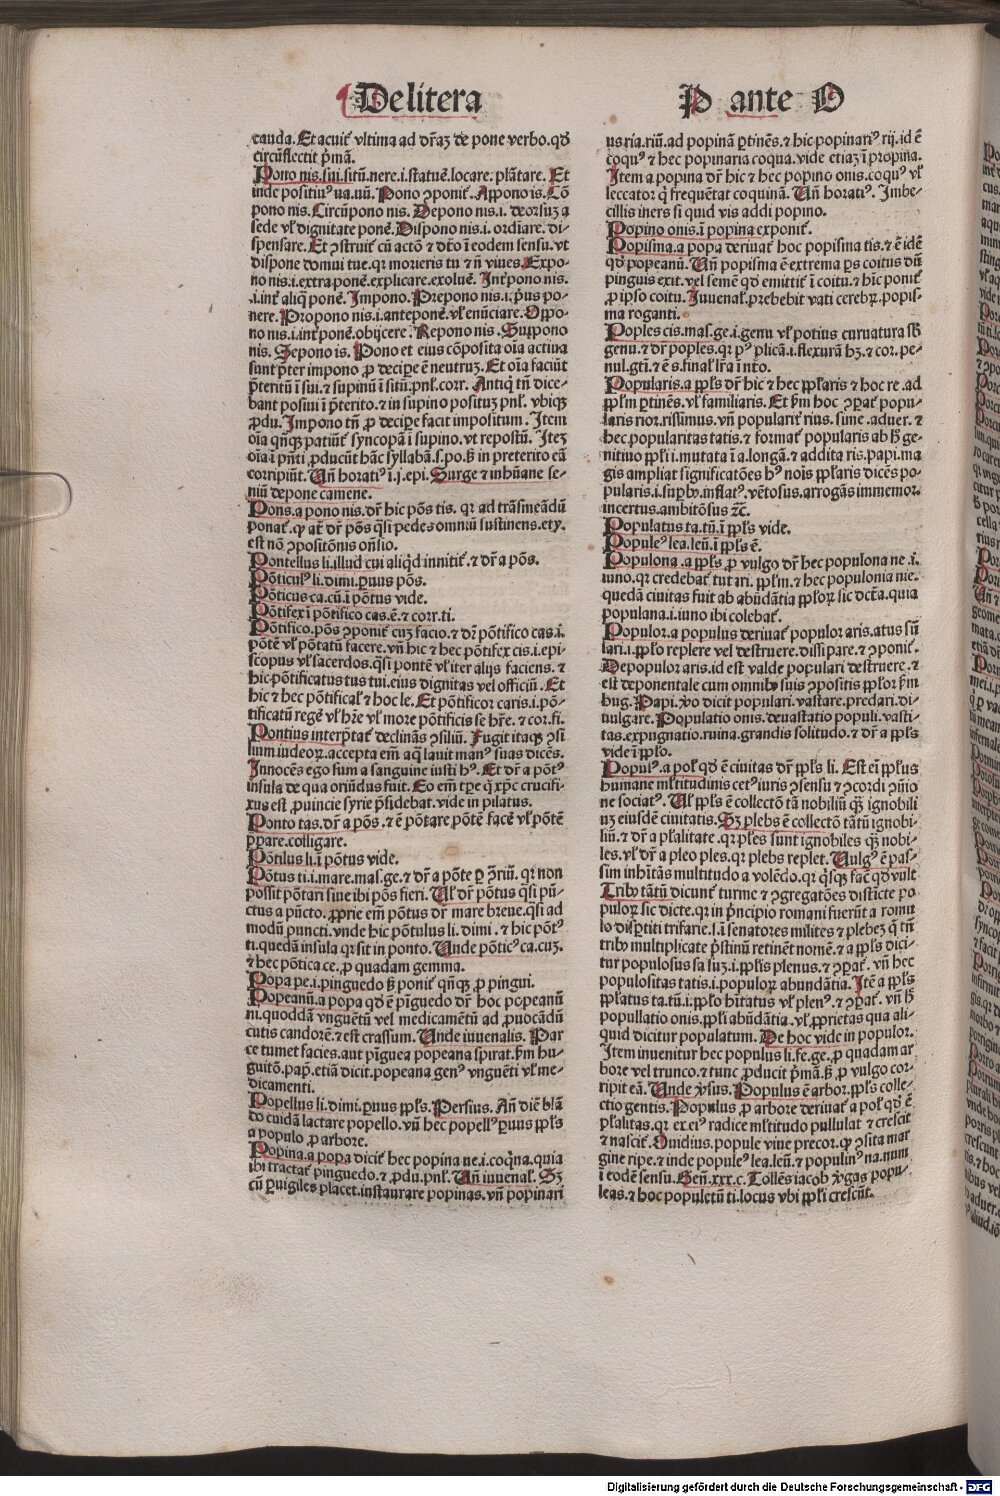 De litera
P ante O
cauda. Et acuit᷑ vltima ad dr̄az de pone verbo. qd̓
circūflectit p̄mā.
Pono nis. sui. sitū. nere .i. statue᷑. locare. plātare. Et
inde positiuꝰ ua. uū. Pono ꝯponit᷑. Appono is. Cō
pono nis. Circūpono nis. Depono nis .i. deorsuz a
sede vl̓ dignitate pone᷑. Dispono nis .i. ordiare. di-
spensare. Et ꝯstruit᷑ cū actō ⁊ dtō ī eodem sensu. vt
dispone domui tue. qꝛ morieris tu ⁊ nō viues. Expo-
no nis .i. extra pone᷑. explicare. exolue᷑. Interpono nis.
.i. int᷑ aliq̄ pone᷑. Impono. Prepono nis .i. p̄us po-
nere. Propono nis .i. antepone᷑. vl̓ enūciare. Oppo-
no nis .i. int᷑pone᷑. obijcere. Repono nis. Suppono
nis. Sepono is. Pono et eius cōposita oīa actiua
sunt p̄ter impono ꝓ decipe ē neutrū. Et oīa faciūt
p̄teritū ī sui. ⁊ supinū ī sitū. pnl̓. corr. Antiq̄ tn̄ dice-
bant posiui ī p̄terito. ⁊ in supino posituz pnl̓. vbiqz
ꝓdu. Impono tn̄ ꝓ decipe facit impositum. Item
oīa qn̄qz patiūt᷑ syncopā ī supino. vt repostū. Itez
oīa ī pn̄ti ꝓducūt hāc syllabā .s. po. ß in preterito eā
corripiūt. Uñ horatiꝰ ī .j. epi. Surge ⁊ inhūane se-
niū depone camene.
Pons. a pono nis. dr̄ hic pōs tis. qꝛ ad trāsmeādū
ponat᷑. qͣ at̄ dr̄ pōs q̄si pedes omniū sustinens. ety.
est nō ꝯpositōnis oñsio.
Pontellus li. illud cui aliqd̓ innitit᷑. ⁊ dr̄ a pōs.
Pōticulꝰ li. dimi. puus pōs.
Pōticus ca. cū. ī pōtus vide.
Pōtifex ī pōtifico cas. ē. ⁊ corr. ti.
Pōtifico. pōs ꝯponit᷑ cuz facio. ⁊ dr̄ pōtifico cas .i.
pōtē vl̓ pōtatū facere. vñ hic ⁊ hec pōtifex cis .i. epi-
scopus vl̓ sacerdos. q̄si pontē vl̓ iter alijs faciens. ⁊
hic pōtificatus tus tui. eius dignitas vel officiū. Et
hic ⁊ hec pōtifical̓ ⁊ hoc le. Et pōtificor caris .i. pō-
tificatū rege᷑ vl̓ hr̄e vl̓ more pōtificis se hr̄e. ⁊ cor. fi.
Pontius interp̄tat᷑ declinās ꝯsiliū. Fugit itaqz ꝯsi
lium iudeoꝝ. accepta em̄ aq̄ lauit manꝰ suas dicēs.
Innocēs ego sum a sanguine iusti hꝰ. Et dr̄ a pōtꝰ
insula de qua oriūdus fuit. Eo em̄ tp̄e q̄ xp̄c crucifi-
xus est ꝓuincie syrie p̄sidebat. vide in pilatus.
Ponto tas. dr̄ a pōs. ⁊ ē pōtare pōtē face᷑ vl̓ pōtē
p̄pare. colligare.
Pōtilus li. ī pōtus vide.
Pōtus ti .i. mare. mas. ge. ⁊ dr̄ a pōte ꝑ ꝯriū. qꝛ non
possit pōtari siue ibi pōs fieri. Ul̓ dr̄ pōtus q̄si pū-
ctus a pūcto. ꝓprie em̄ pōtus dr̄ mare breue. q̄si ad
modū puncti. vnde hic pōtulus li. dimi. ⁊ hic pōtꝰ
ti. quedā insula qꝛ sit in ponto. Unde pōticꝰ ca. cuz.
⁊ hec pōtica ce. ꝓ quadam gemma.
Popa pe .i. pinguedo ß ponit᷑ qn̄qz ꝓ pingui.
Popeanū. a popa qd̓ ē pīguedo dr̄ hoc popeanū
ni. quoddā vnguētū vel medicamētū ad ꝓuocādū
cutis candorē. ⁊ est crassum. Unde iuuenalis. Par
ce tumet facies. aut pīguea popeana spirat. ẜm hu-
guitō. pap̄. etiā dicit. popeana genꝰ vnguēti vl̓ me-
dicamenti.
Popellus li. dimi. puus ppl̓s. Persius. An̄ diē blā
do cuidā lactare popello. vñ hec popellꝰ puus ppl̓s
a populo ꝓ arbore.
Popina. a popa dicit᷑ hec popina ne .i. coq̄na. quia
ibi tractat᷑ pinguedo. ⁊ ꝓdu. pnl̓. Uñ iuuenal̓. Sz
cū puigiles placet. instaurare popinas. vñ popinari
us ria. riū. ad popinā ptinēs. ⁊ hic popinariꝰ rij. id ē
coqͧꝰ ⁊ hec popinaria coqua. vide etiaz ī propina.
Item a popina dr̄ hic ⁊ hec popino onis. coqͧꝰ vl̓
leccator q̄ frequētat coquinā. Uñ horatiꝰ. Imbe-
cillis iners si quid vis addi popino.
Popino onis. ī popina exponit᷑.
Popisma. a popa deriuat᷑ hoc popisma tis. ⁊ ē idē
qd̓ popeanū. Uñ popisma ē extrema ps coitus dū
pinguis exit. vel seme᷑ qd̓ emittit᷑ ī coitu. ⁊ hīc ponit᷑
ꝓ ipso coitu. Iuuenal̓. prebebit vati cerebꝝ. popis-
ma roganti.
Poples cis. mas. ge .i. genu vl̓ potius curuatura sb̓
genu. ⁊ dr̄ poples. qꝛ pꝰ plicā .i. flexurā hz. ⁊ cor. pe-
nul. gtī. ⁊ ē s. final̓ lr̄a ī ntō.
Popularis. a ppl̓s dr̄ hic ⁊ hec ppl̓aris ⁊ hoc re. ad
ppl̓m ptinēs. vl̓ familiaris. Et ẜm hoc ꝯpat᷑ popu-
laris rior. rissimus. vñ popularit᷑ rius. sime. aduer. ⁊
hec popularitas tatis. ⁊ format᷑ popularis ab h̓ ge-
nitiuo ppl̓i i. mutata ī a. longā. ⁊ addita ris. papi. ma
gis ampliat significatōes hꝰ nois̄ ppl̓aris dicēs po-
pularis .i. supb̓ꝰ. inflatꝰ. vētosus. arrogās immemor.
incertus. ambitōsus ꝛc̄.
Populatus ta. tū. ī ppl̓s vide.
Populeꝰ lea. leū. ī ppl̓s ē.
Populona. a ppl̓s ꝓ vulgo dr̄ hec populona ne .i.
iuno. qꝛ credebat᷑ tutari. ppl̓m. ⁊ hec populonia nie.
quedā ciuitas fuit ab abūdātia ppl̓oꝝ sic dcta. quia
populana .i. iuno ibi colebat᷑.
Populor. a populus deriuat᷑ populor aris. atus sū
lari .i. ppl̓o replere vel destruere. dissipare. ⁊ ꝯponit᷑.
Depopulor aris. id est valde populari destruere. ⁊
est deponentale cum omnibꝰ suis ꝯpositis ppl̓or ẜm
hug. Papi. v̓o dicit populari. vastare. predari. di-
uulgare. Populatio onis. deuastatio populi. vasti-
tas. expugnatio. ruina. grandis solitudo. ⁊ dr̄ a ppl̓s
vide ī ppl̓o.
Populꝰ. a pol̓ qd̓ ē ciuitas dr̄ ppl̓s li. Est eī ppl̓us
humane ml̓titudinis cetꝰ iuris ꝯsensu ⁊ ꝯcordi ꝯnio
ne sociatꝰ. Ul̓ ppl̓s ē collectō tā nobiliū qͣz ignobili
uz eiusdē ciuitatis. Sz plebs ē collectō tātū ignobi-
liū. ⁊ dr̄ a pl̓alitate. qꝛ pl̓es sunt ignobiles qͣz nobi-
les. vl̓ dr̄ a pleo ples. qꝛ plebs replet. Uulgꝰ ē pas-
sim inhītās multitudo a volēdo. qꝛ q̄sqz fac̄ qd̓ vult
Tribꝰ tātū dicunt᷑ turme ⁊ ꝯgregatōes disticte po
puloꝝ sic dicte. qꝛ in p̄ncipio romani fuerūt a romu
lo disptiti trifarie. s. ī senatores milites ⁊ plebez q̄ tn̄
tribꝰ multiplicate p̄stinū retinēt nomē. ⁊ a ppl̓s dici-
tur populosus sa suz .i. ppl̓is plenus. ⁊ ꝯpat᷑. vñ hec
populositas tatis .i. populoꝝ abundātia. Itē a ppl̓s
ppl̓atus ta. tū .i. ppl̓o hītatus vl̓ plenꝰ. ⁊ ꝯpat᷑. vñ h̓
popullatio onis. ppl̓i abūdātia. vl̓ ꝓprietas qua ali-
quid dicitur populatum. De hoc vide in populor.
Item inuenitur hec populus li. fe. ge. ꝓ quadam ar
bore vel trunco. ⁊ tunc ꝓducit p̄mā. ß ꝓ vulgo cor-
ripit eā. Unde v̓sus. Populus ē arbor. ppl̓s colle-
ctio gentis. Populus ꝓ arbore deriuat᷑ a pol̓ qd̓ ē
pl̓alitas. qꝛ ex eiꝰ radice ml̓titudo pullulat ⁊ crescit
⁊ nascit᷑. Ouidius. popule viue precor. q̄ ꝯsita mar
gine ripe. ⁊ inde populeꝰ lea. leū. ⁊ populinꝰ na. num
ī eodē sensu. Gen̄. xxx. c. Tollēs iacob v̓gas popu-
leas. ⁊ hoc populetū ti. locus vbi ppl̓i crescūt.
Digitalisierung gefördert durch die Deutsche Forschungsgemeinschaft - DFG